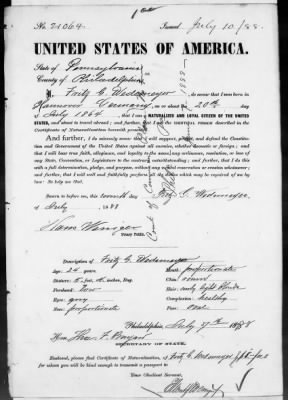 No. 21064 Issued, July 10/88.
UNITED STATES OF AMERICA.
State of Pennsylvania
County of Philadelphia
I, Fritz G. Wedemeyer, do swear that I was born in
Hannover Germany, on or about the 20th day
of July 1864, that I am a NATURALIZED AND LOYAL CITIZEN OF THE UNITED
STATES, and about to travel abroad; and further, that I am the IDENTICAL PERSON described in the
Certificate of Naturalization herewith presented.
And further, I do solemnly swear that I will support, protect, and defend the Constitution
and Government of the United States against all enemies, whether domestic or foreign; and
that I will bear true faith, allegiance, and loyalty to the same, any ordinance, resolution, or law of
any State, Convention, or Legislature to the contrary notwithstanding; and further, that I do this
with a full determination, pledge, and purpose, without any mental reservation or evasion whatsoever;
and further, that I will well and faithfully perform all the duties which may be required of me by
law: So help me God.
Sworn to before me, this seventh day Fritz G. Wedemeyer
of July, 1888
Notary Public.
Description of Fritz G. Wedemeyer
Age: 24 years
Mouth: proportionate
Stature: 5 feet, inches, Eng.
Chin: round
Forehead: low
Hair: curly light blonde
Eyes: grey
Complexion: healthy
Nose: proportionate
Face: oval
Philadelphia, July 7th 1888
Hon. Thos. F. Bayard
SECRETARY OF STATE.
Enclosed, please find Certificate of Naturalization, of Fritz G. Wedemeyer
for whom you will be kind enough to transmit a passport to
Your Obedient Servant,